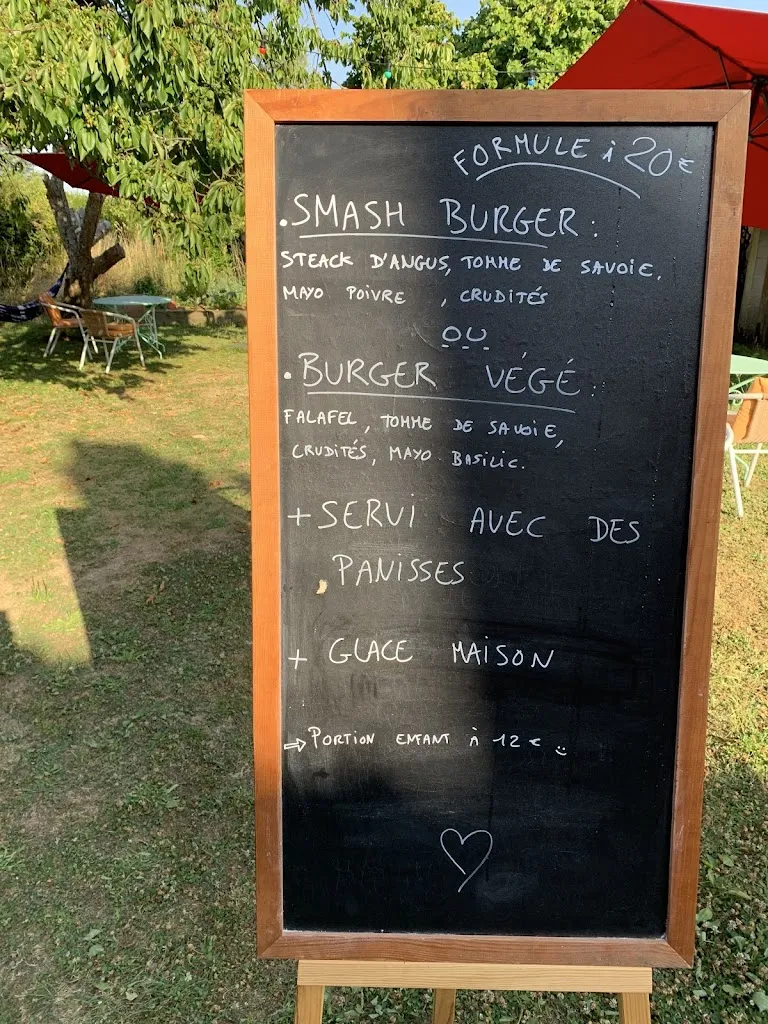 FORMULE à 20€
. SMASH BURGER :
STEACK D'ANGUS, TOMME DE SAVOIE,
MAYO POIVRE , CRUDITÉS
OU
. BURGER VÉGÉ :
FALAFEL, TOMME DE SAVOIE,
CRUDITÉS, MAYO BASILIC.
+ SERVI AVEC DES
PANISSES
+ GLACE MAISON
⇒ PORTION ENFANT À 12€ :)